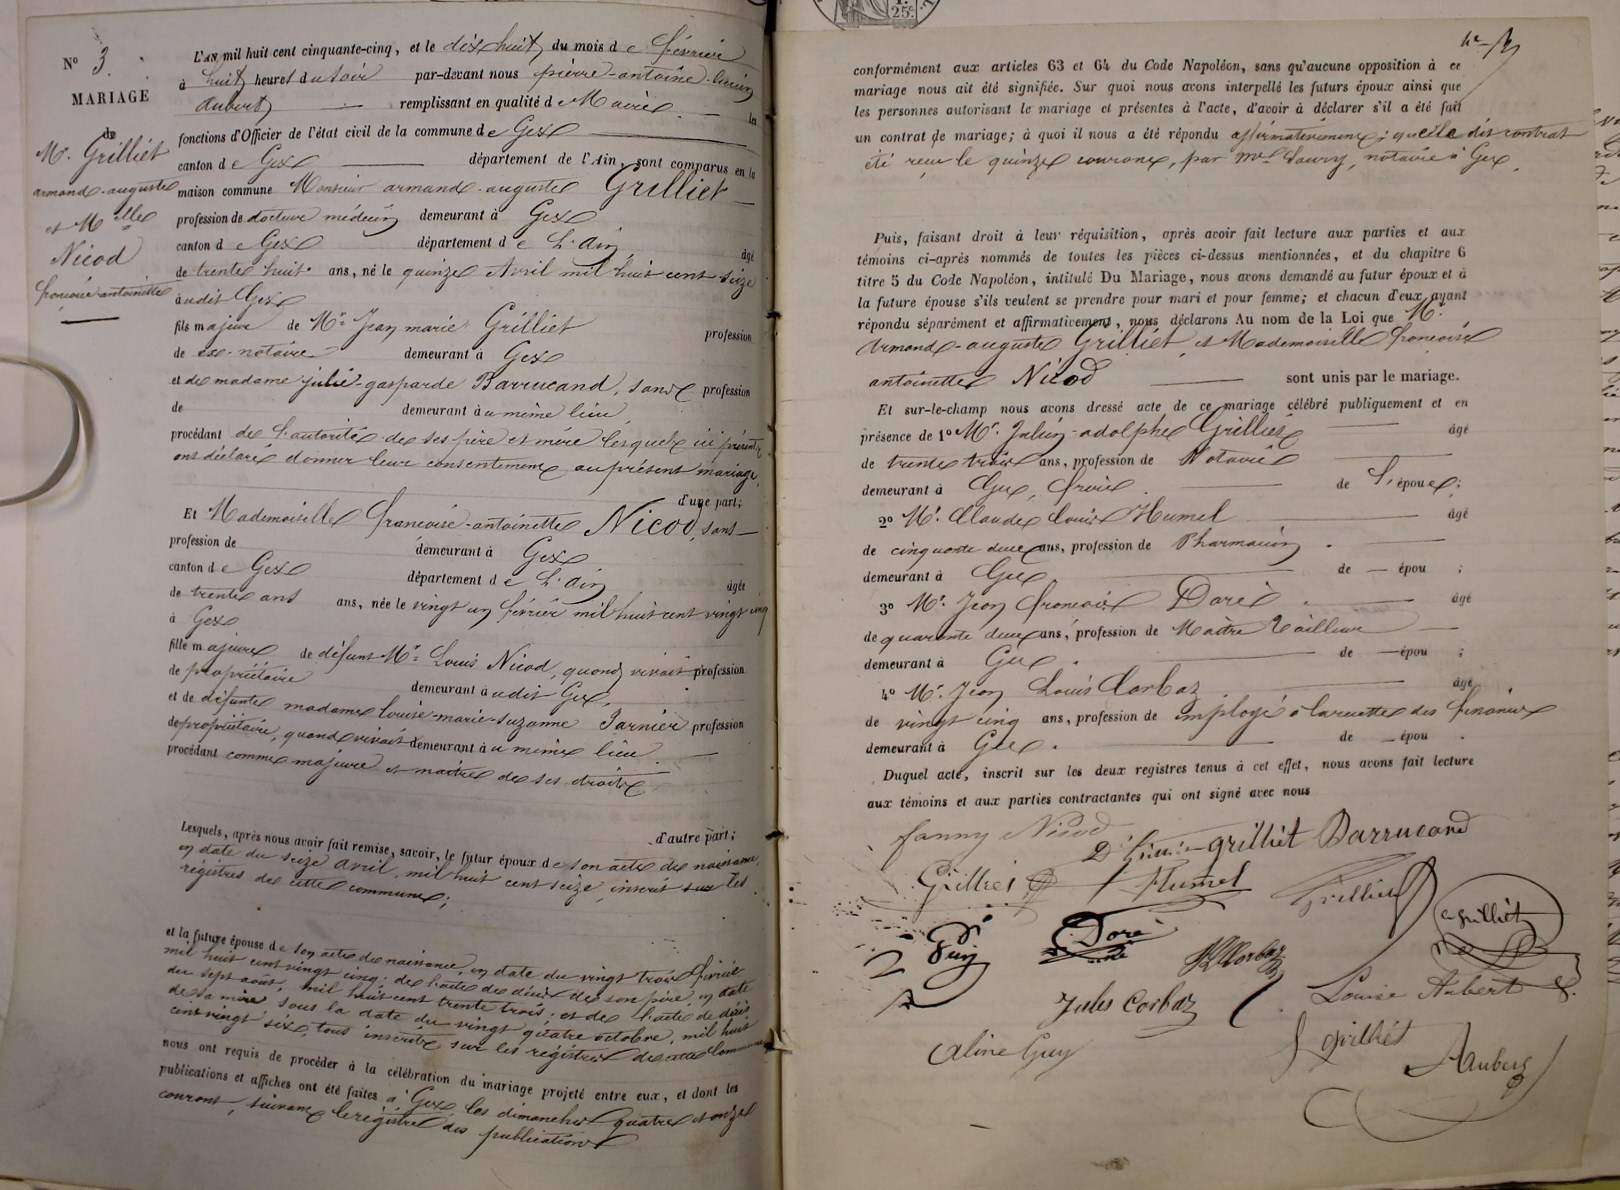 N° 3.
MARIAGE
de
Mr. Grilliet
armand-auguste
et Melle
Nicod
françoise antoinette
L'an mil huit cent cinquante-cinq, et le dix huit du mois de février
à huit heures du soir par-devant nous pierre-antoine-
Aubert remplissant en qualité de Maire les
fonctions d'Officier de l'état civil de la commune de Gex
canton de Gex département de l'Ain, sont comparus en la
maison commune Monsieur armand-auguste Grilliet
profession de docteur médecin demeurant à Gex
canton de Gex département de L'ain âgé
de trente huit ans, né le quinze Avril mil huit cent seize
audit Gex
fils majeur de Mr. Jean marie Grilliet profession
de ex-notaire demeurant à Gex
et de madame julie-gasparde Barrucand, sans profession
de demeurant au même lieu
procédant de l'autorité de ses père et mère lesquels ici présents
ont déclaré donner leur consentement au présent mariage,
d'une part;
Et Mademoiselle françoise-antoinette Nicod, sans
profession de demeurant à Gex
canton de Gex département de L'ain âgée
de trente ans ans, née le vingt un février mil huit cent vingt cinq
à Gex
fille majeure de défunt Mr. Louis Nicod, quand vivait profession
de propriétaire demeurant audit Gex,
et de défunte madame Louise-marie-suzanne Parnier profession
de propriétaire, quand vivait demeurant au même lieu.
procédant comme majeure et maître de ses droits
d'autre part;
Lesquels, après nous avoir fait remise, savoir, le futur époux de son acte de naissance,
en date du seize avril, mil huit cent seize, inscrit sur les
régistres de cette commune;
et la future épouse de son acte de naissance, en date du vingt trois février
mil huit cent vingt cinq; de l'acte de décès de son père, en date
du sept août, mil huit cent trente trois; et de l'acte de décès
de sa mère sous la date du vingt quatre octobre, mil huit
cent vingt six, tous inscrits sur les régistres de cette commune
nous ont requis de procéder à la célébration du mariage projeté entre eux, et dont les
publications et affiches ont été faites à Gex les dimanches quatre et onze
courant, suivant le régistre des publications
conformément aux articles 63 et 64 du Code Napoléon, sans qu'aucune opposition à ce
mariage nous ait été signifiée. Sur quoi nous avons interpellé les futurs époux ainsi que
les personnes autorisant le mariage et présentes à l'acte, d'avoir à déclarer s'il a été fait
un contrat de mariage; à quoi il nous a été répondu affirmativement; que le dit contrat
été reçu le quinze courant, par me. notaire à Gex.
Puis, faisant droit à leur réquisition, après avoir fait lecture aux parties et aux
témoins ci-après nommés de toutes les pièces ci-dessus mentionnées, et du chapitre 6
titre 5 du Code Napoléon, intitulé Du Mariage, nous avons demandé au futur époux et à
la future épouse s'ils veulent se prendre pour mari et pour femme; et chacun d'eux ayant
répondu séparément et affirmativement, nous déclarons Au nom de la Loi que Mr.
Armand-auguste Grilliet et Mademoiselle françoise
antoinette Nicod sont unis par le mariage.
Et sur-le-champ nous avons dressé acte de ce mariage célébré publiquement et en
présence de 1° Mr. Julien-adolphe Grilliet âgé
de trente trois ans, profession de Notaire
demeurant à Gex, frère de L'époux;
2° Mr. Claude Louis Humel âgé
de cinquante deux ans, profession de Pharmacien
demeurant à Gex de — épou ;
3° Mr. Jean françois Doré âgé
de quarante deux ans, profession de Maître Tailleur
demeurant à Gex de — épou ;
4° Mr. Jean Louis Corbaz âgé
de vingt cinq ans, profession de employé à la recette des finances
demeurant à Gex de — épou .
Duquel acte, inscrit sur les deux registres tenus à cet effet, nous avons fait lecture
aux témoins et aux parties contractantes qui ont signé avec nous
fanny Nicod
grilliet Barrucand
Grilliet Humel Grilliet
a. grilliet
Doré
Corbaz
Jules Corbaz
Louise Aubert
Aline Guy
grilliet
Aubert